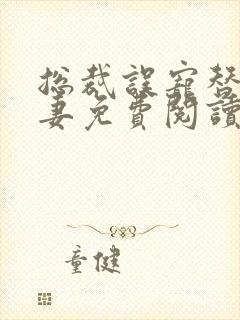 總裁誤寵替
妻免費閱讀
童健